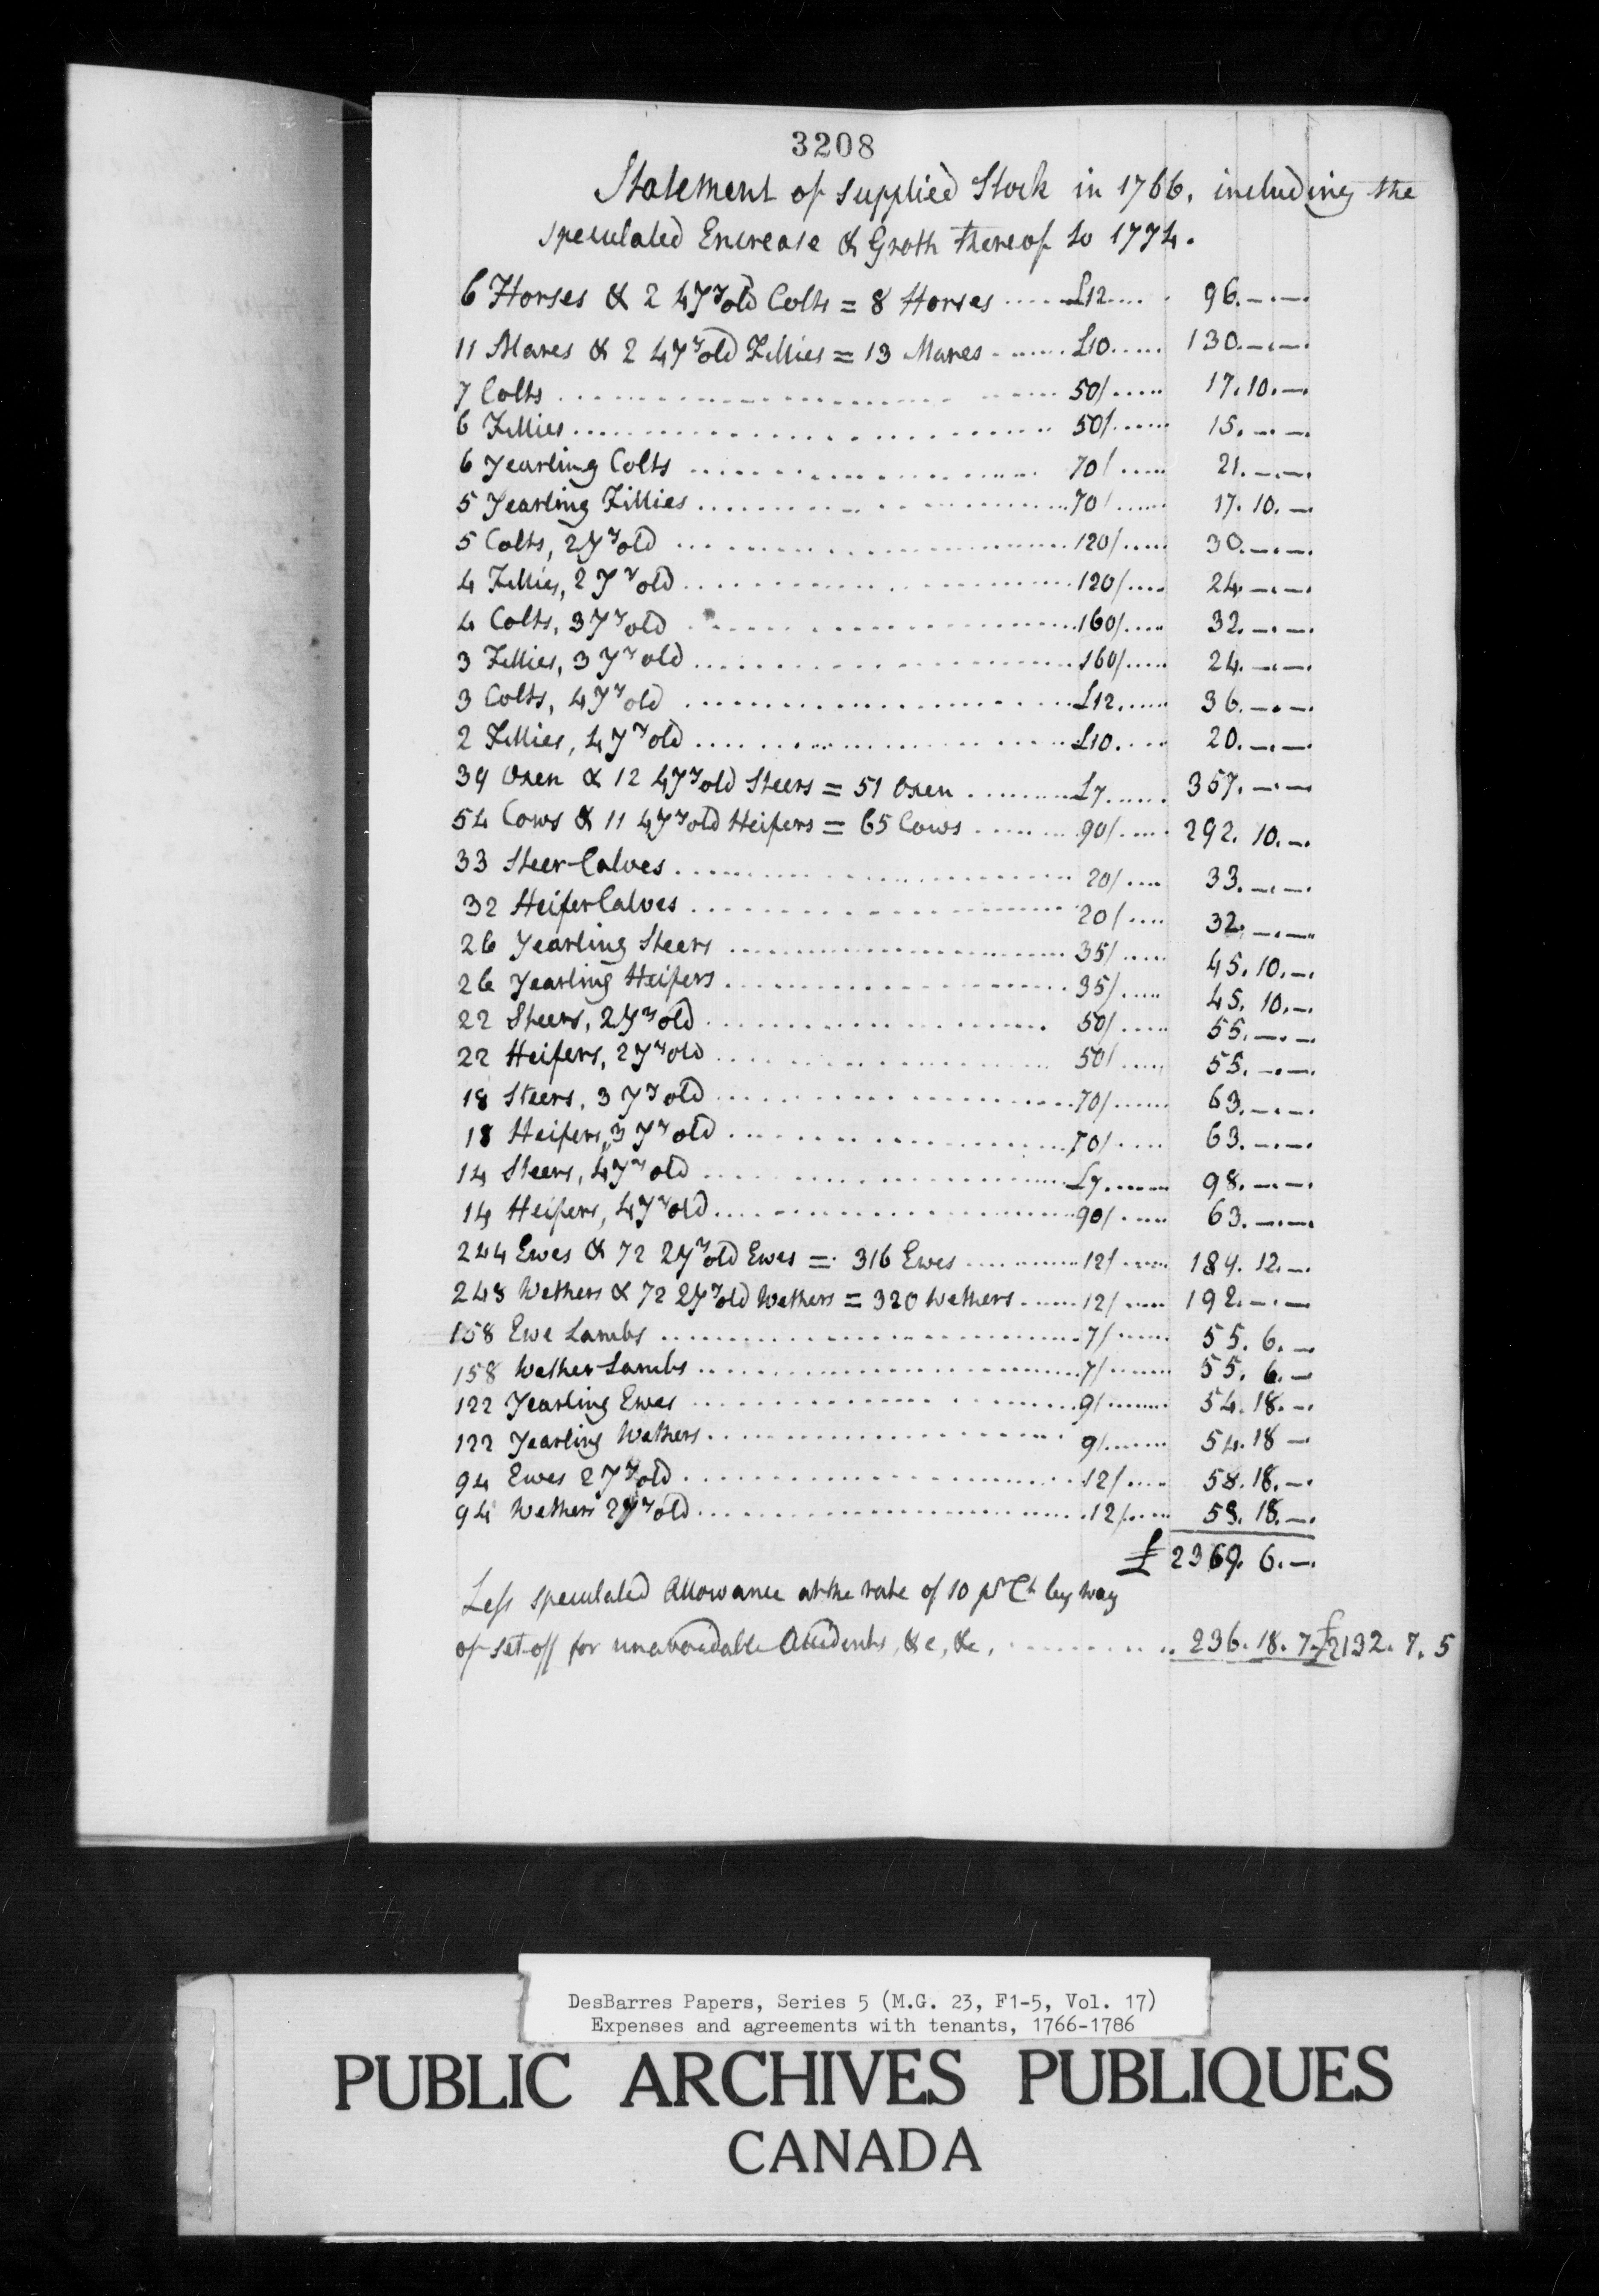 3208
Statement of supplied Stock in 1766, including the
speculated Encrease & Groth thereof to 1774.
6 Horses & 2 4 Yr old Colts = 8 Horses ..... £12 ..... 96. — . — .
11 Mares & 2 4 Yr old Fillies = 13 Mares ..... £10 ..... 130. — . — .
7 Colts ..... 50/ ..... 17. 10. — .
6 Fillies ..... 50/ ..... 15. — . — .
6 Yearling Colts ..... 70/ ..... 21. — . — .
5 Yearling Fillies ..... 70/ ..... 17. 10. —
5 Colts, 2 Yr old ..... 120/ ..... 30. — . — .
4 Fillies, 2 Yr old ..... 120/ ..... 24. — . — .
4 Colts, 3 Yr old ..... 160/ ..... 32. — . — .
3 Fillies, 3 Yr old ..... 160/ ..... 24. — . — .
3 Colts, 4 Yr old ..... £12 ..... 36. — . — .
2 Fillies, 4 Yr old ..... £10 ..... 20. — . — .
39 Oxen & 12 4 Yr old Steers = 51 Oxen ..... £7 ..... 357. — . —
54 Cows & 11 4 Yr old Heifers = 65 Cows ..... 90/ ..... 292. 10. — .
33 Steer-Calves ..... 20/ ..... 33. — . — .
32 Heifer Calves ..... 20/ ..... 32. — . — .
26 Yearling Steers ..... 35/ ..... 45. 10. — .
26 Yearling Heifers ..... 35/ ..... 45. 10. — .
22 Steers, 2 Yr old ..... 50/ ..... 55. — . — .
22 Heifers, 2 Yr old ..... 50/ ..... 55. — . — .
18 Steers, 3 Yr old ..... 70/ ..... 63. — . — .
18 Heifers, 3 Yr old ..... 70/ ..... 63. — . — .
14 Steers, 4 Yr old ..... £7 ..... 98. — . — .
14 Heifers, 4 Yr old ..... 90/ ..... 63. — . — .
244 Ewes & 72 2 Yr old Ewes = 316 Ewes ..... 12/ ..... 189. 12. — .
248 Wethers & 72 2 Yr old Wethers = 320 Wethers ..... 12/ ..... 192. — . —
158 Ewe Lambs ..... 7/ ..... 55. 6. —
158 Wether-Lambs ..... 7/ ..... 55. 6. —
122 Yearling Ewes ..... 9/ ..... 54. 18. — .
122 Yearling Wethers ..... 9/ ..... 54. 18 —
94 Ewes 2 Yr old ..... 12/ ..... 58. 18. — .
94 Wethers 2 Yr old ..... 12/ ..... 58. 18. — .
£ 2369. 6. — .
Less speculated Allowance at the rate of 10 pr Ct by way
of set-off for unavoidable Accidents, &c, &c, ..... 236. 18. 7. £2132. 7. 5
DesBarres Papers, Series 5 (M.G. 23, F1-5, Vol. 17)
Expenses and agreements with tenants, 1766-1786
PUBLIC ARCHIVES PUBLIQUES
CANADA